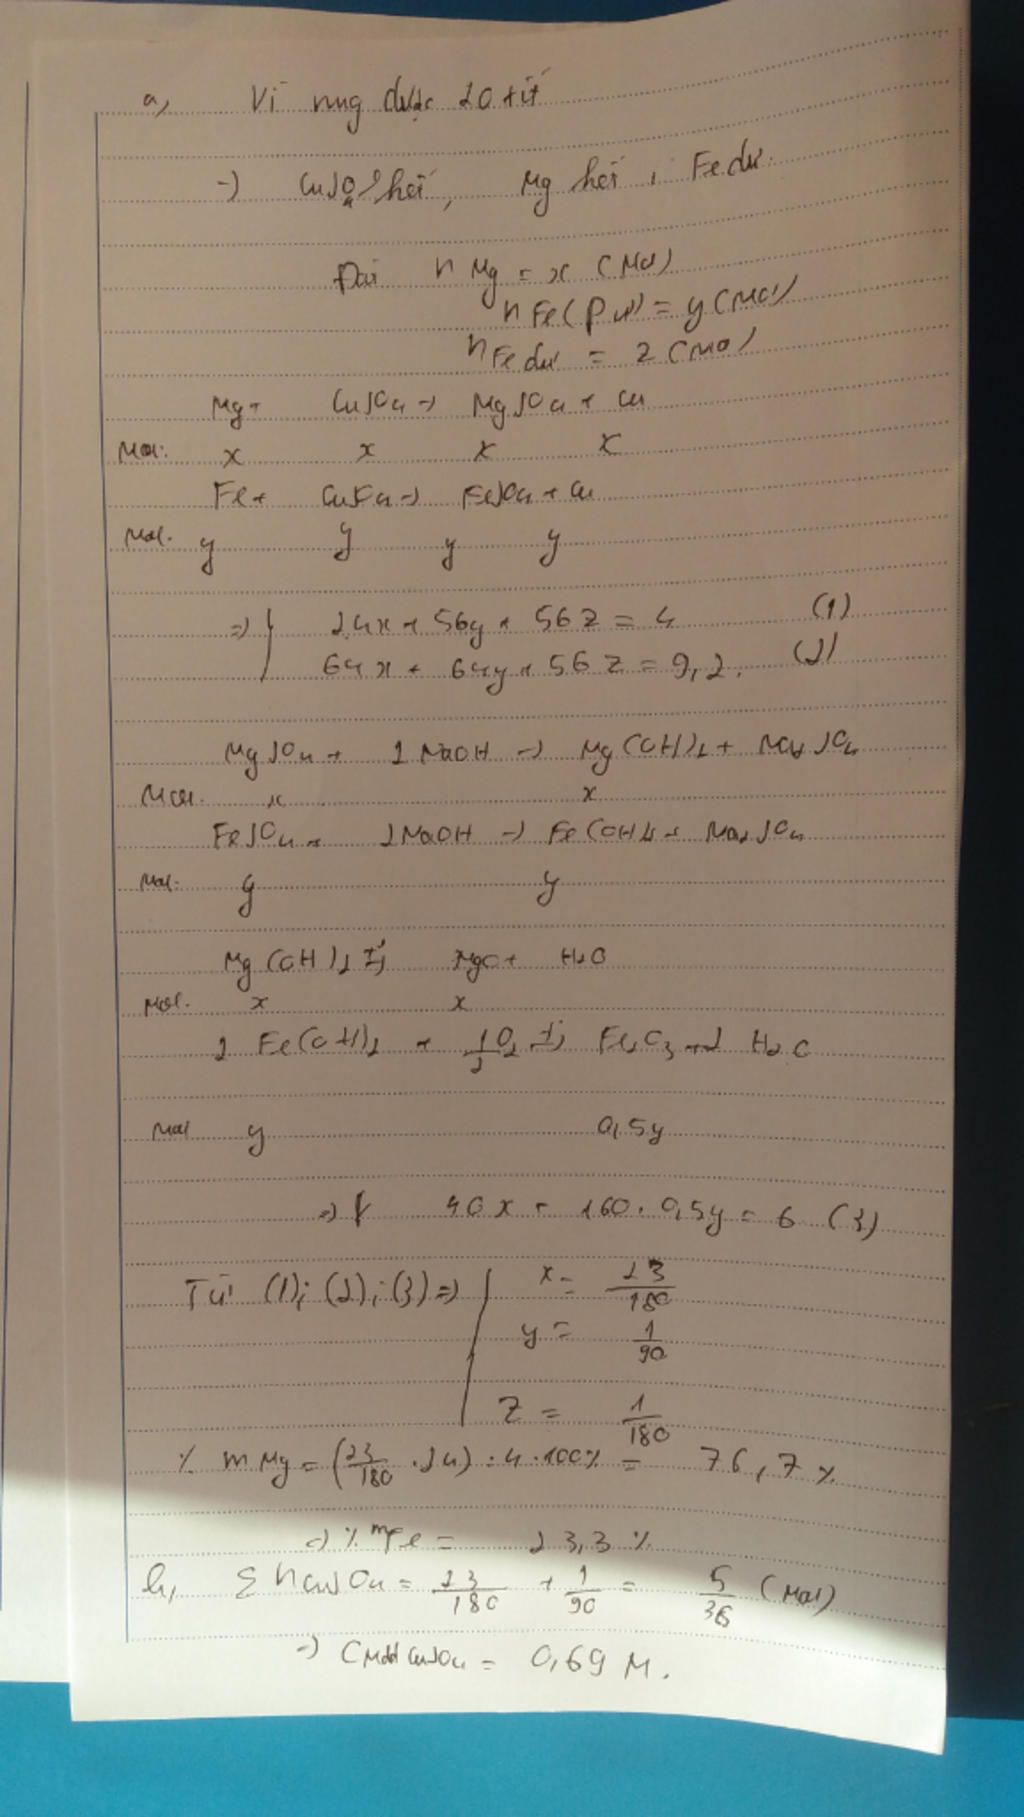 a, Vì nung được 2 oxit
-) CuSO4 hết, Mg hết, Fe dư.
Đặt n Mg = x (Mol)
n Fe(pư) = y (Mol)
n Fe dư = z (Mol)
Mg + CuSO4 -> MgSO4 + Cu
Mol: x x x x
Fe + CuSO4 -> FeSO4 + Cu
Mol. y y y y
=> { 24x + 56y + 56z = 4 (1)
64x + 64y + 56z = 9,2. (2)
MgSO4 + 2NaOH -> Mg(OH)2 + Na2SO4
Mol. x x
FeSO4 + 2NaOH -> Fe(OH)2 + Na2SO4
Mol. y y
Mg(OH)2 MgO + H2O
Mol. x x
2 Fe(OH)2 + 1/2 O2 Fe2O3 + 2 H2O
Mol y 0,5y
=> { 40x + 160 . 0,5y = 6 (3)
Từ (1); (2); (3) => { x = 23/180
y = 1/90
z = 1/180
% m Mg = (23/180 . 24) : 4 . 100% = 76,7%
=> % mFe = 23,3 %
b, Σ nCuSO4 = 23/180 + 1/90 = 5/36 (Mol)
-> CMdd CuSO4 = 0,69 M.